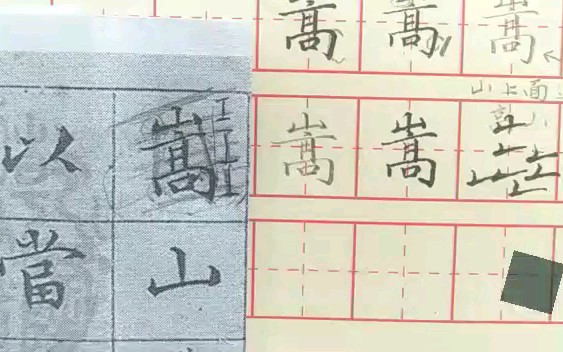 嵩嵩嵩
山上面
以嵩嵩嵩
當山